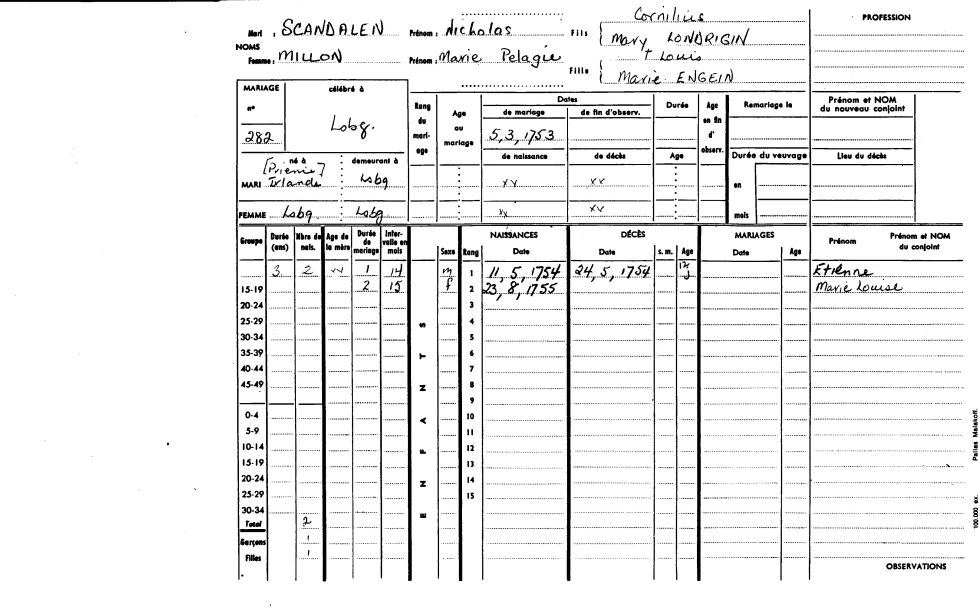 Cornilius
PROFESSION
Mari : SCANDALEN Prénom : Nicholas Fils { Mary LONDRIGIN
NOMS
Femme : MILLON Prénom : Marie Pelagie Fille { † Louis
Marie ENGEIN
MARIAGE célébré à
n° 282 Lobg.
Rang du mari-age
Age au mariage
Dates
de mariage de fin d'observ.
5,3,1753
de naissance de décès
Durée
Age
Age en fin d' observ.
Remariage le
Durée du veuvage
en
mois
Prénom et NOM du nouveau conjoint
Lieu du décès
né à demeurant à
MARI Irlande Lsbg xx xx
FEMME Lsbg Lsbg xx xx
Groupe Durée (ans) Nbre de nais. Age de la mère Durée de mariage Inter-valle en mois
ENFANTS
Sexe Rang NAISSANCES Date DÉCÈS Date s. m. Age MARIAGES Date Age Prénom Prénom et NOM du conjoint
3 2 1 14 m 1 11, 5, 1754 24, 5, 1754 Etienne
15-19 2 15 f 2 23, 8, 1755 Marie Louise
20-24 3
25-29 4
30-34 5
35-39 6
40-44 7
45-49 8
9
0-4 10
5-9 11
10-14 12
15-19 13
20-24 14
25-29 15
30-34
Total 2
Garçons 1
Filles 1
OBSERVATIONS
100.000 ex. Pallas Malakoff.